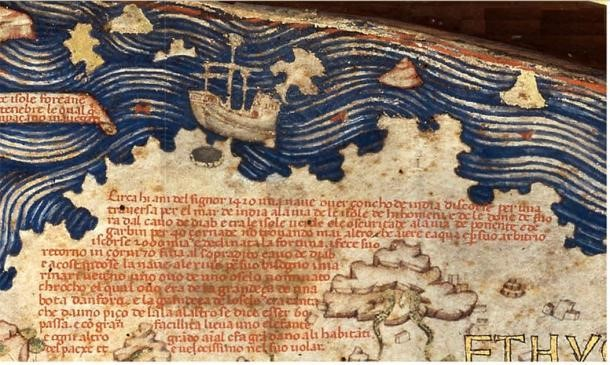 isole
tenebre le qual
Circa hi ani del signor 1420 una nave over concho de india discorse per una
traversa per el mar de india a la via de le isole de hi homeni e de le done de fuo
ra dal cavo de diab e tra le isole verde e le oscuritade a la via de ponente e de
garbin per 40 çornade no trovando mai altro che aiere e aqua e p suo arbitrio
iscorse 2000 mia e declinata la fortuna i fece suo
retorno in çorni 70 fina al sopradito cavo de diab
e acostandose la nave a le rive p suo bisogno i
marinari vedeno uno ovo de uno oselo nominato
chrocho el qual ovo era de la grandeça de una
bota d anfora e la grandeça de l oselo era tanta
che da uno piço de l ala a l altro se dice esser 60
passa e cō gran facilita lieva uno elefante
e ogni altro grādo aīal e fa gran dāno a li habitāti
del paexe et e velocissimo nel suo volar
ETHYO